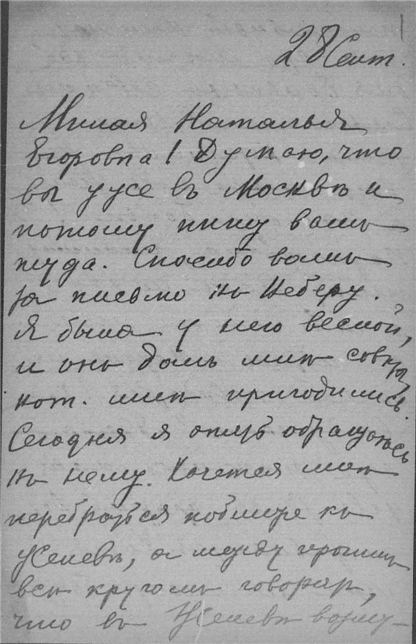 28 Сент.
Милая Наталья
Егоровна! Думаю, что
вы уже въ Москвѣ и
потому пишу вамъ
туда. Спасибо вамъ
за письмо къ Веберу.
Я была у него весной,
и онъ далъ мнѣ совѣты,
кот. мнѣ пригодились.
Сегодня я опять обращаюсь
къ нему. Хочется мнѣ
перебраться поближе къ
Женевѣ, а между прочимъ
всѣ кругомъ говорят,
что въ Женевѣ возму-